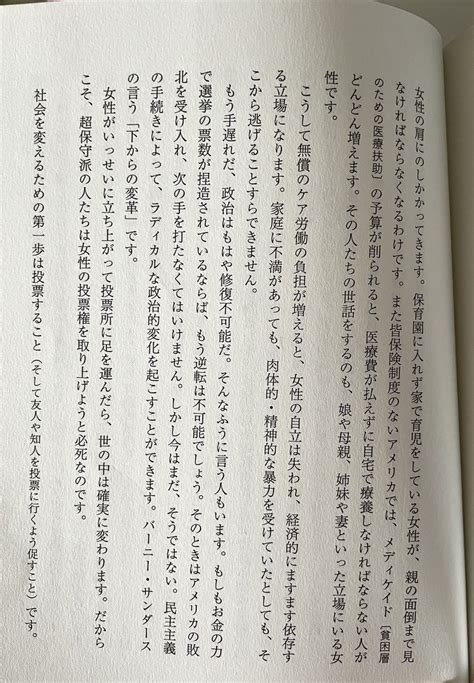 女性の肩にのしかかってきます。保育園に入れず家で育児をしている女性が、親の面倒まで見
なければならなくなるわけです。また皆保険制度のないアメリカでは、メディケイド〔貧困層
のための医療扶助〕の予算が削られると、医療費が払えずに自宅で療養しなければならない人が
どんどん増えます。その人たちの世話をするのも、娘や母親、姉妹や妻といった立場にいる女
性です。
こうして無償のケア労働の負担が増えると、女性の自立は失われ、経済的にますます依存す
る立場になります。家庭に不満があっても、肉体的・精神的な暴力を受けていたとしても、そ
こから逃げることすらできません。
もう手遅れだ、政治はもはや修復不可能だ。そんなふうに言う人もいます。もしもお金の力
で選挙の票数が捏造されているならば、もう逆転は不可能でしょう。そのときはアメリカの敗
北を受け入れ、次の手を打たなくてはいけません。しかし今はまだ、そうではない。民主主義
の手続きによって、ラディカルな政治的変化を起こすことができます。バーニー・サンダース
の言う「下からの変革」です。
女性がいっせいに立ち上がって投票所に足を運んだら、世の中は確実に変わります。だから
こそ、超保守派の人たちは女性の投票権を取り上げようと必死なのです。
社会を変えるための第一歩は投票すること（そして友人や知人を投票に行くよう促すこと）です。